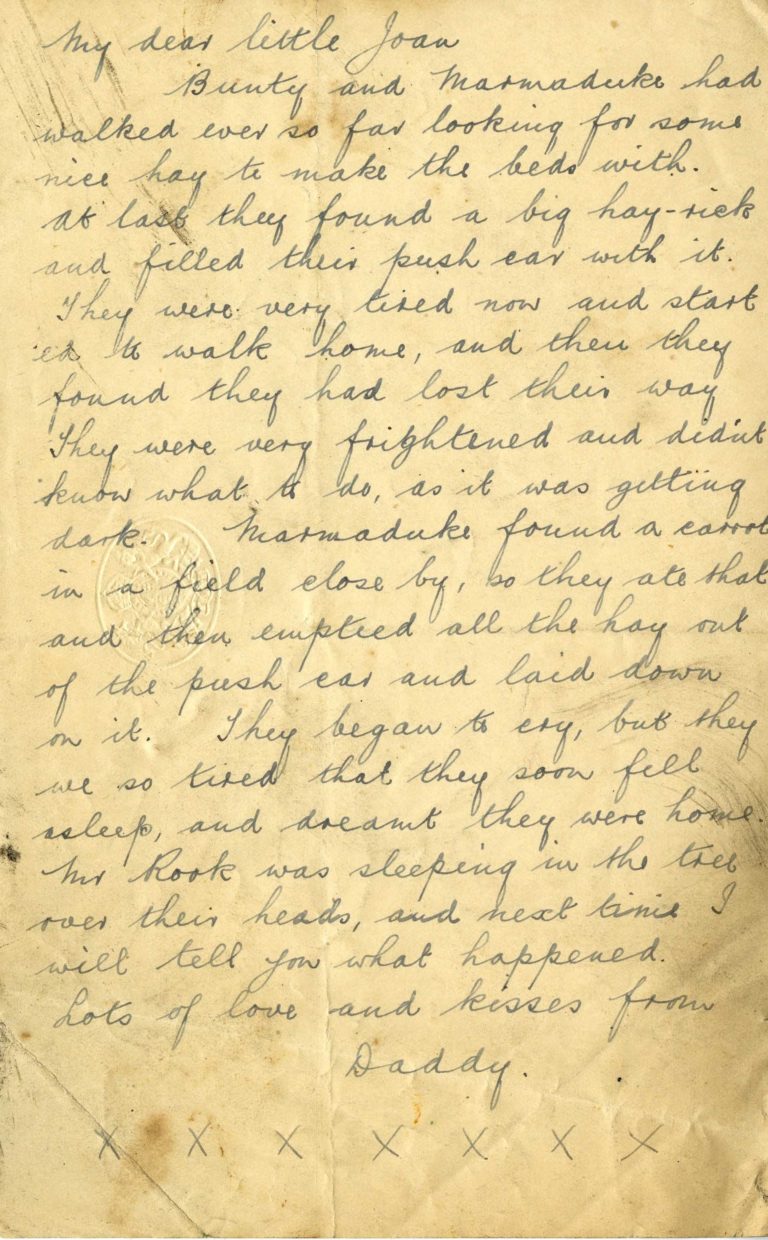 My dear little Joan
Bunty and Marmaduke had
walked ever so far looking for some
nice hay to make the beds with.
At last they found a big hay-rick
and filled their push car with it.
They were very tired now and start
ed to walk home, and then they
found they had lost their way
They were very frightened and didn't
know what to do, as it was getting
dark. Marmaduke found a carrot
in a field close by, so they ate that
and then emptied all the hay out
of the push car and laid down
on it. They began to cry, but they
we so tired that they soon fell
asleep, and dreamt they were home.
Mr Rook was sleeping in the tree
over their heads, and next time I
will tell you what happened.
Lots of love and kisses from
Daddy.
X X X X X X X